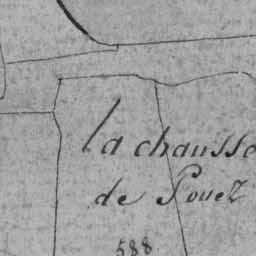 la chausse
de Pouez
588